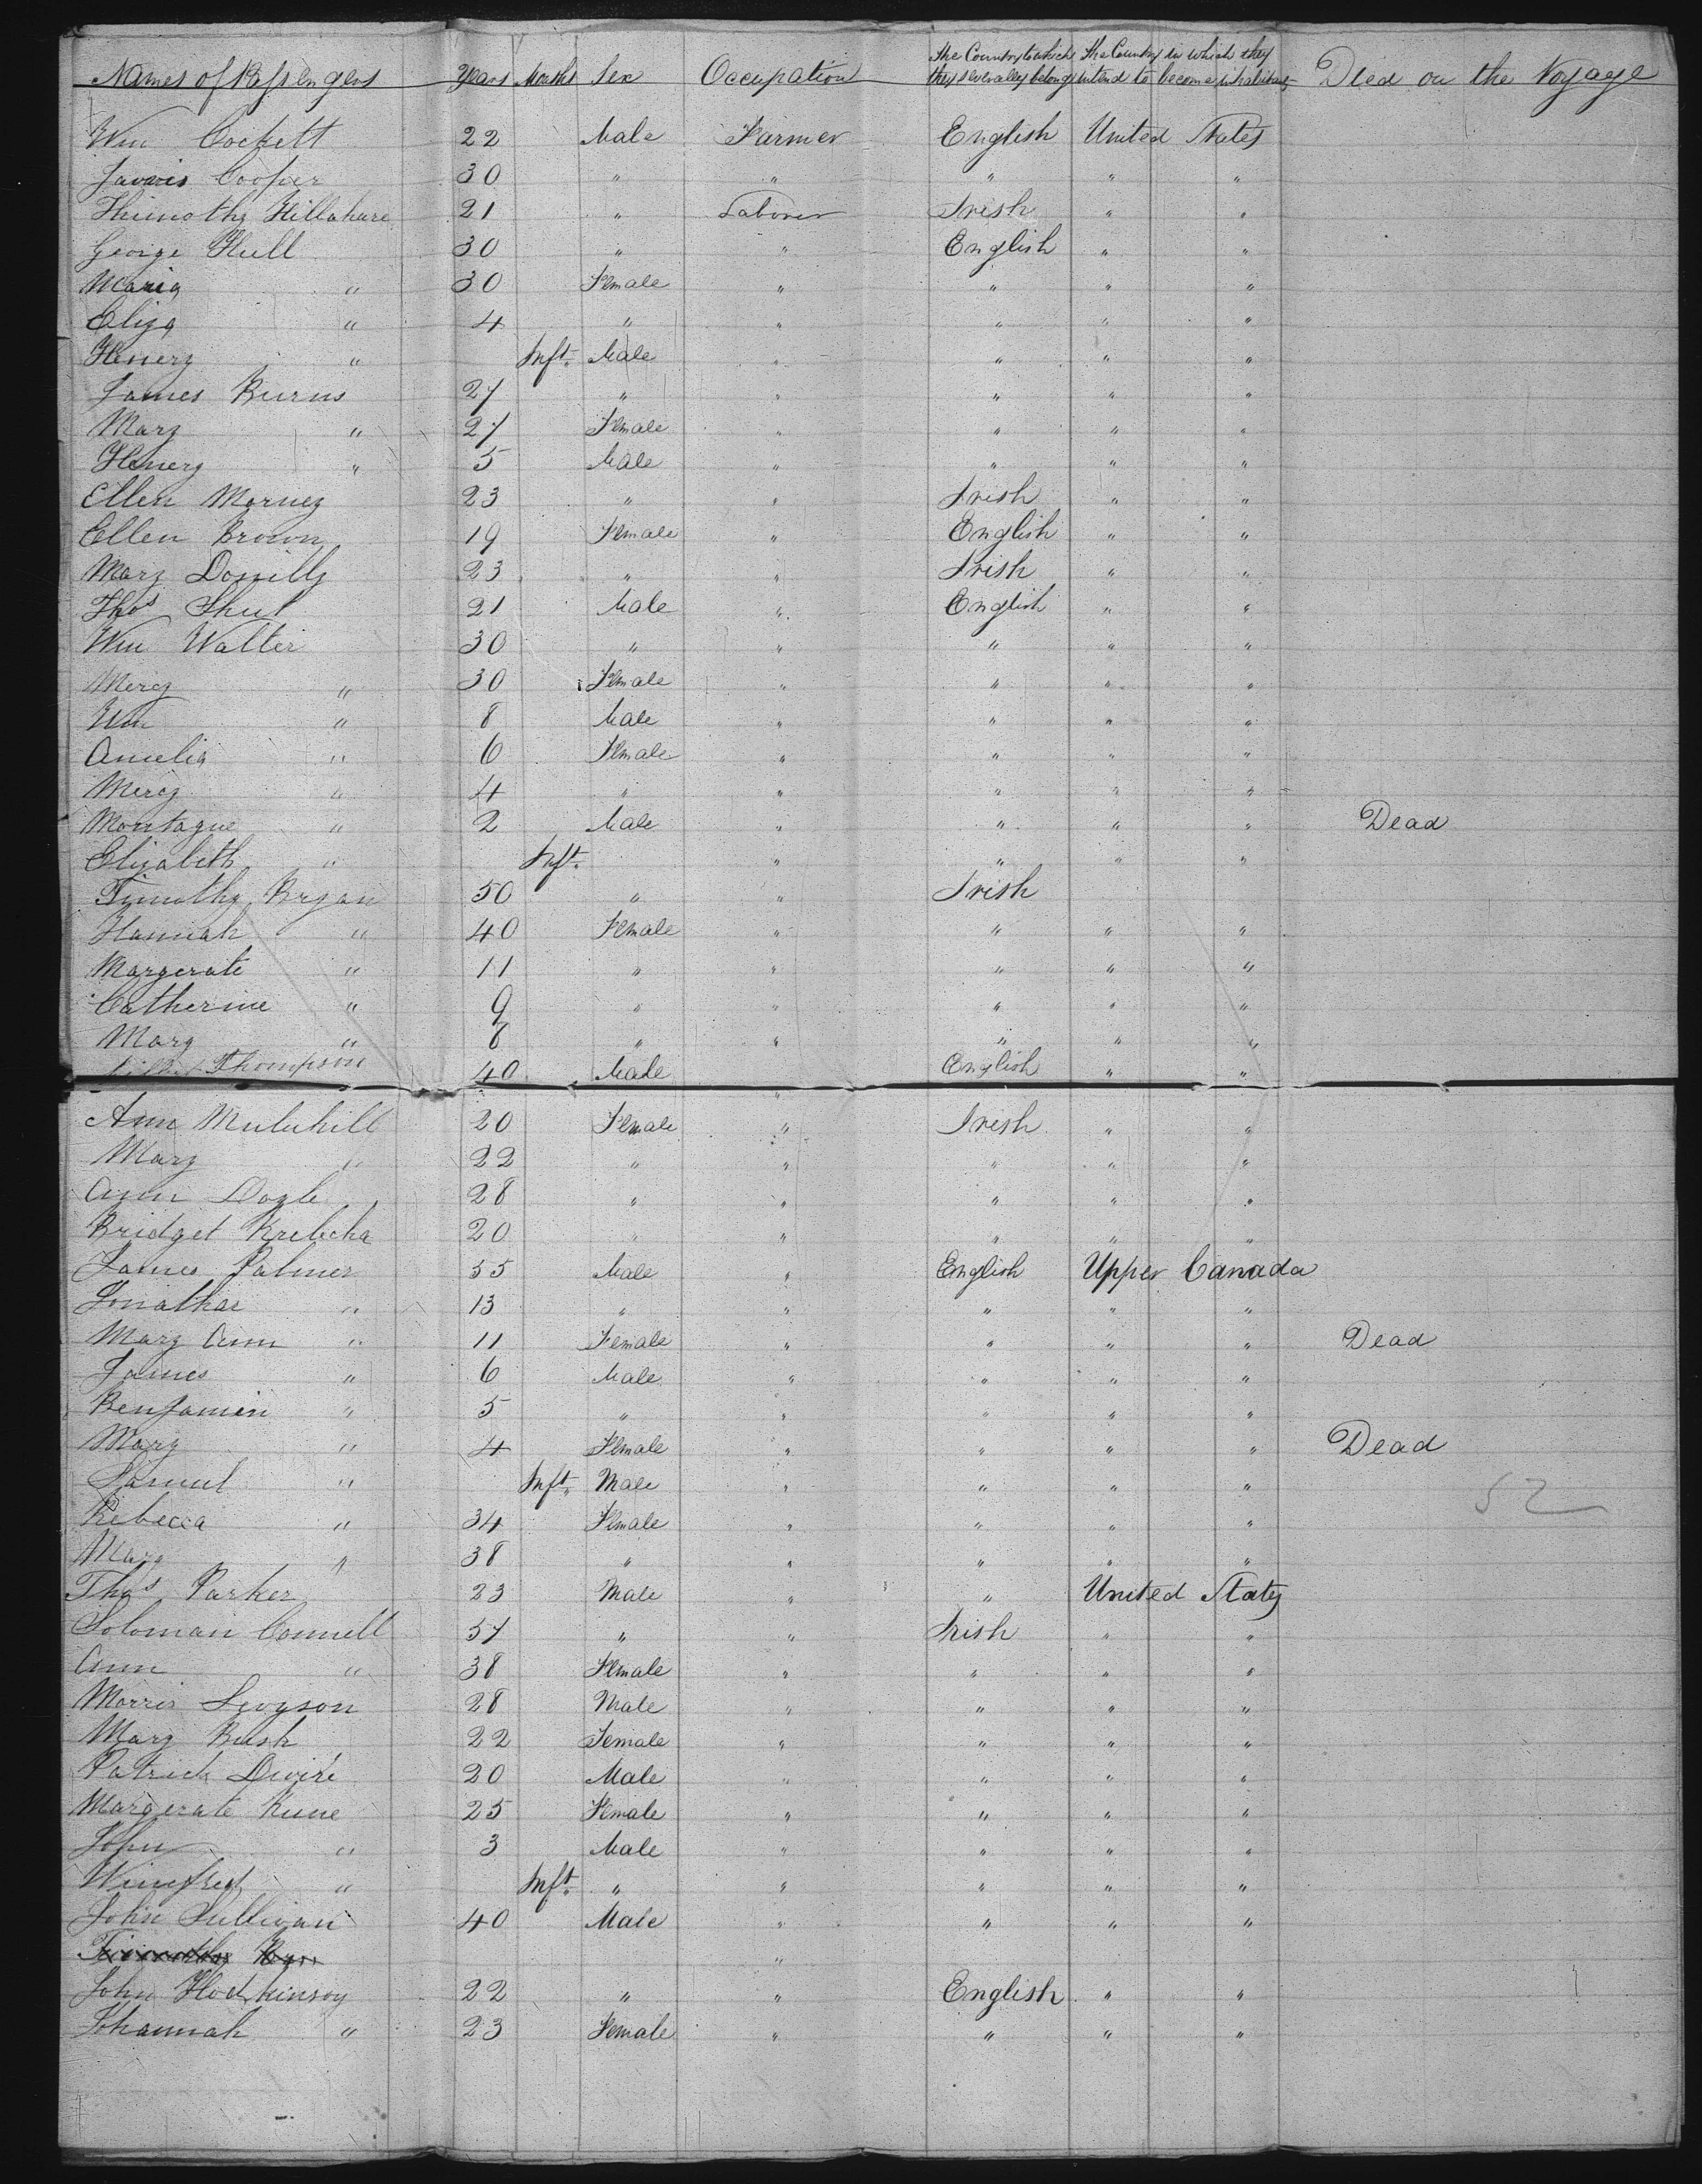 Names of Passengers Years Months Sex Occupation The Country to which they severally belong The Country in which they intend to become inhabitants Died on the Voyage
Wm Cockett 22 Male Farmer English United States
Jarvis Cooper 30 " " " " "
Thimothy Hillahare 21 " Laborer Irish " "
George Hull 30 " " English " "
Maria " 30 Female " " " "
Eliza " 4 " " " " "
Henery " Inft. Male " " " "
James Burns 27 " " " " "
Mary " 27 Female " " " "
Henery " 5 Male " " " "
Ellen Morney 23 " " Irish " "
Ellen Brown 19 Female " English " "
Mary Donilly 23 " " Irish " "
Thos Shut 21 Male " English " "
Wm Walter 30 " " " " "
Mercy " 30 Female " " " "
Wm " 8 Male " " " "
Amelia " 6 Female " " " "
Mercy " 4 " " " " "
Montague " 2 Male " " " " Dead
Elizabeth " Inft. " " " "
Timothy Bryan 50 " " Irish
Hannah " 40 Female " " " "
Margerate " 11 " " " " "
Catherine " 9 " " " " "
Mary " 8 " " " " "
Thompson 40 Male English " "
"
Ann Muluhill 20 Female " Irish " "
Mary " 22 " " " " "
Ann Doyle 28 " " " " "
Bridget 20 " " " " "
James Palmer 35 Male " English Upper Canada
Jonathar " 13 " " " " "
Mary Ann " 11 Female " " " " Dead
James " 6 Male " " " "
Benjamin " 5 " " " " "
Mary " 4 Female " " " " Dead
Samuel " Inft. Male " " " "
52
Rebecca " 34 Female " " " "
Mary " 38 " " " " "
Thos Parker 23 Male " " United States
Soloman Connell 57 " " Irish " "
Ann " 38 Female " " " "
Morris 28 Male " " " "
Mary Bush 22 Female " " " "
Patrick Dwire 20 Male " " " "
Margerate Kune 25 Female " " " "
John " 3 Male " " " "
Winefred " Inft. " " " " "
John Sullivan 40 Male " " " "
Timothy "
John Hodkinson 22 " " English " "
Johannah " 23 Female " " " "